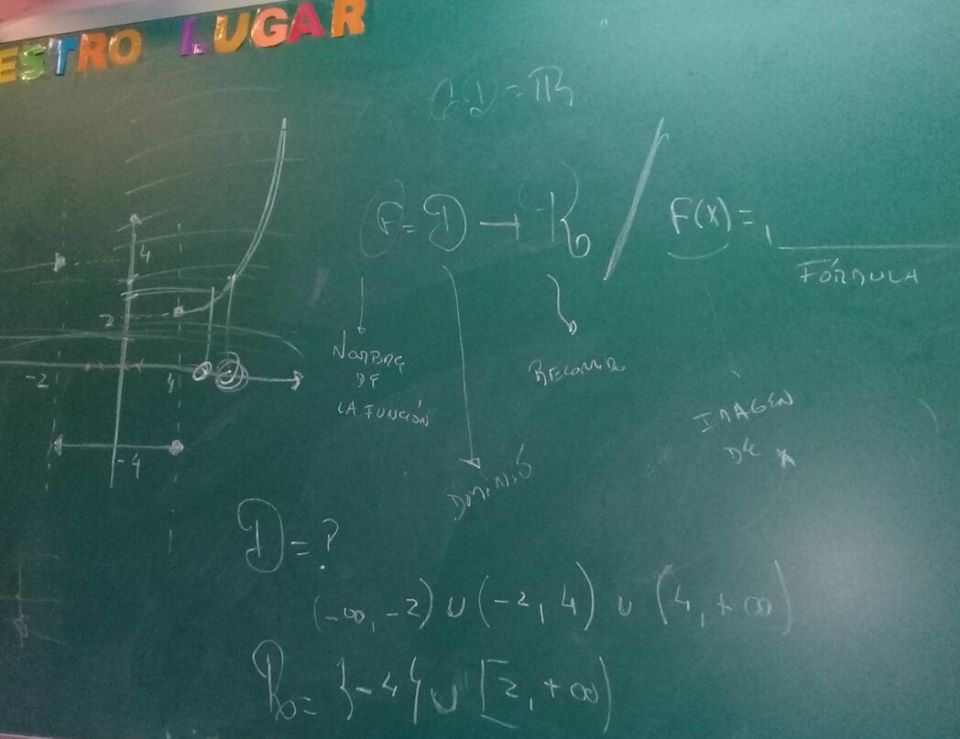 ESTRO LUGAR
CD = ℝ
F = D → R / F(x) =
FÓRMULA
4
2
-2
4
-4
NOMBRE
DE
LA FUNCIÓN
RECORRIDO
DOMINIO
IMAGEN
DE X
D = ?
(-∞, -2) ∪ (-2, 4) ∪ (4, +∞)
R = }-4{ ∪ [2, +∞)